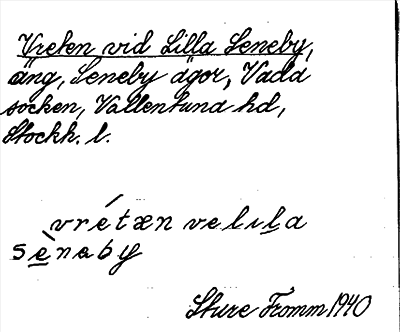 Vreten vid Lilla Seneby,
äng, Seneby ägor, Vada
socken, Vallentuna hd,
Stockh. l.
vrétæn velıla
sènaby
Sture Fromm 1940